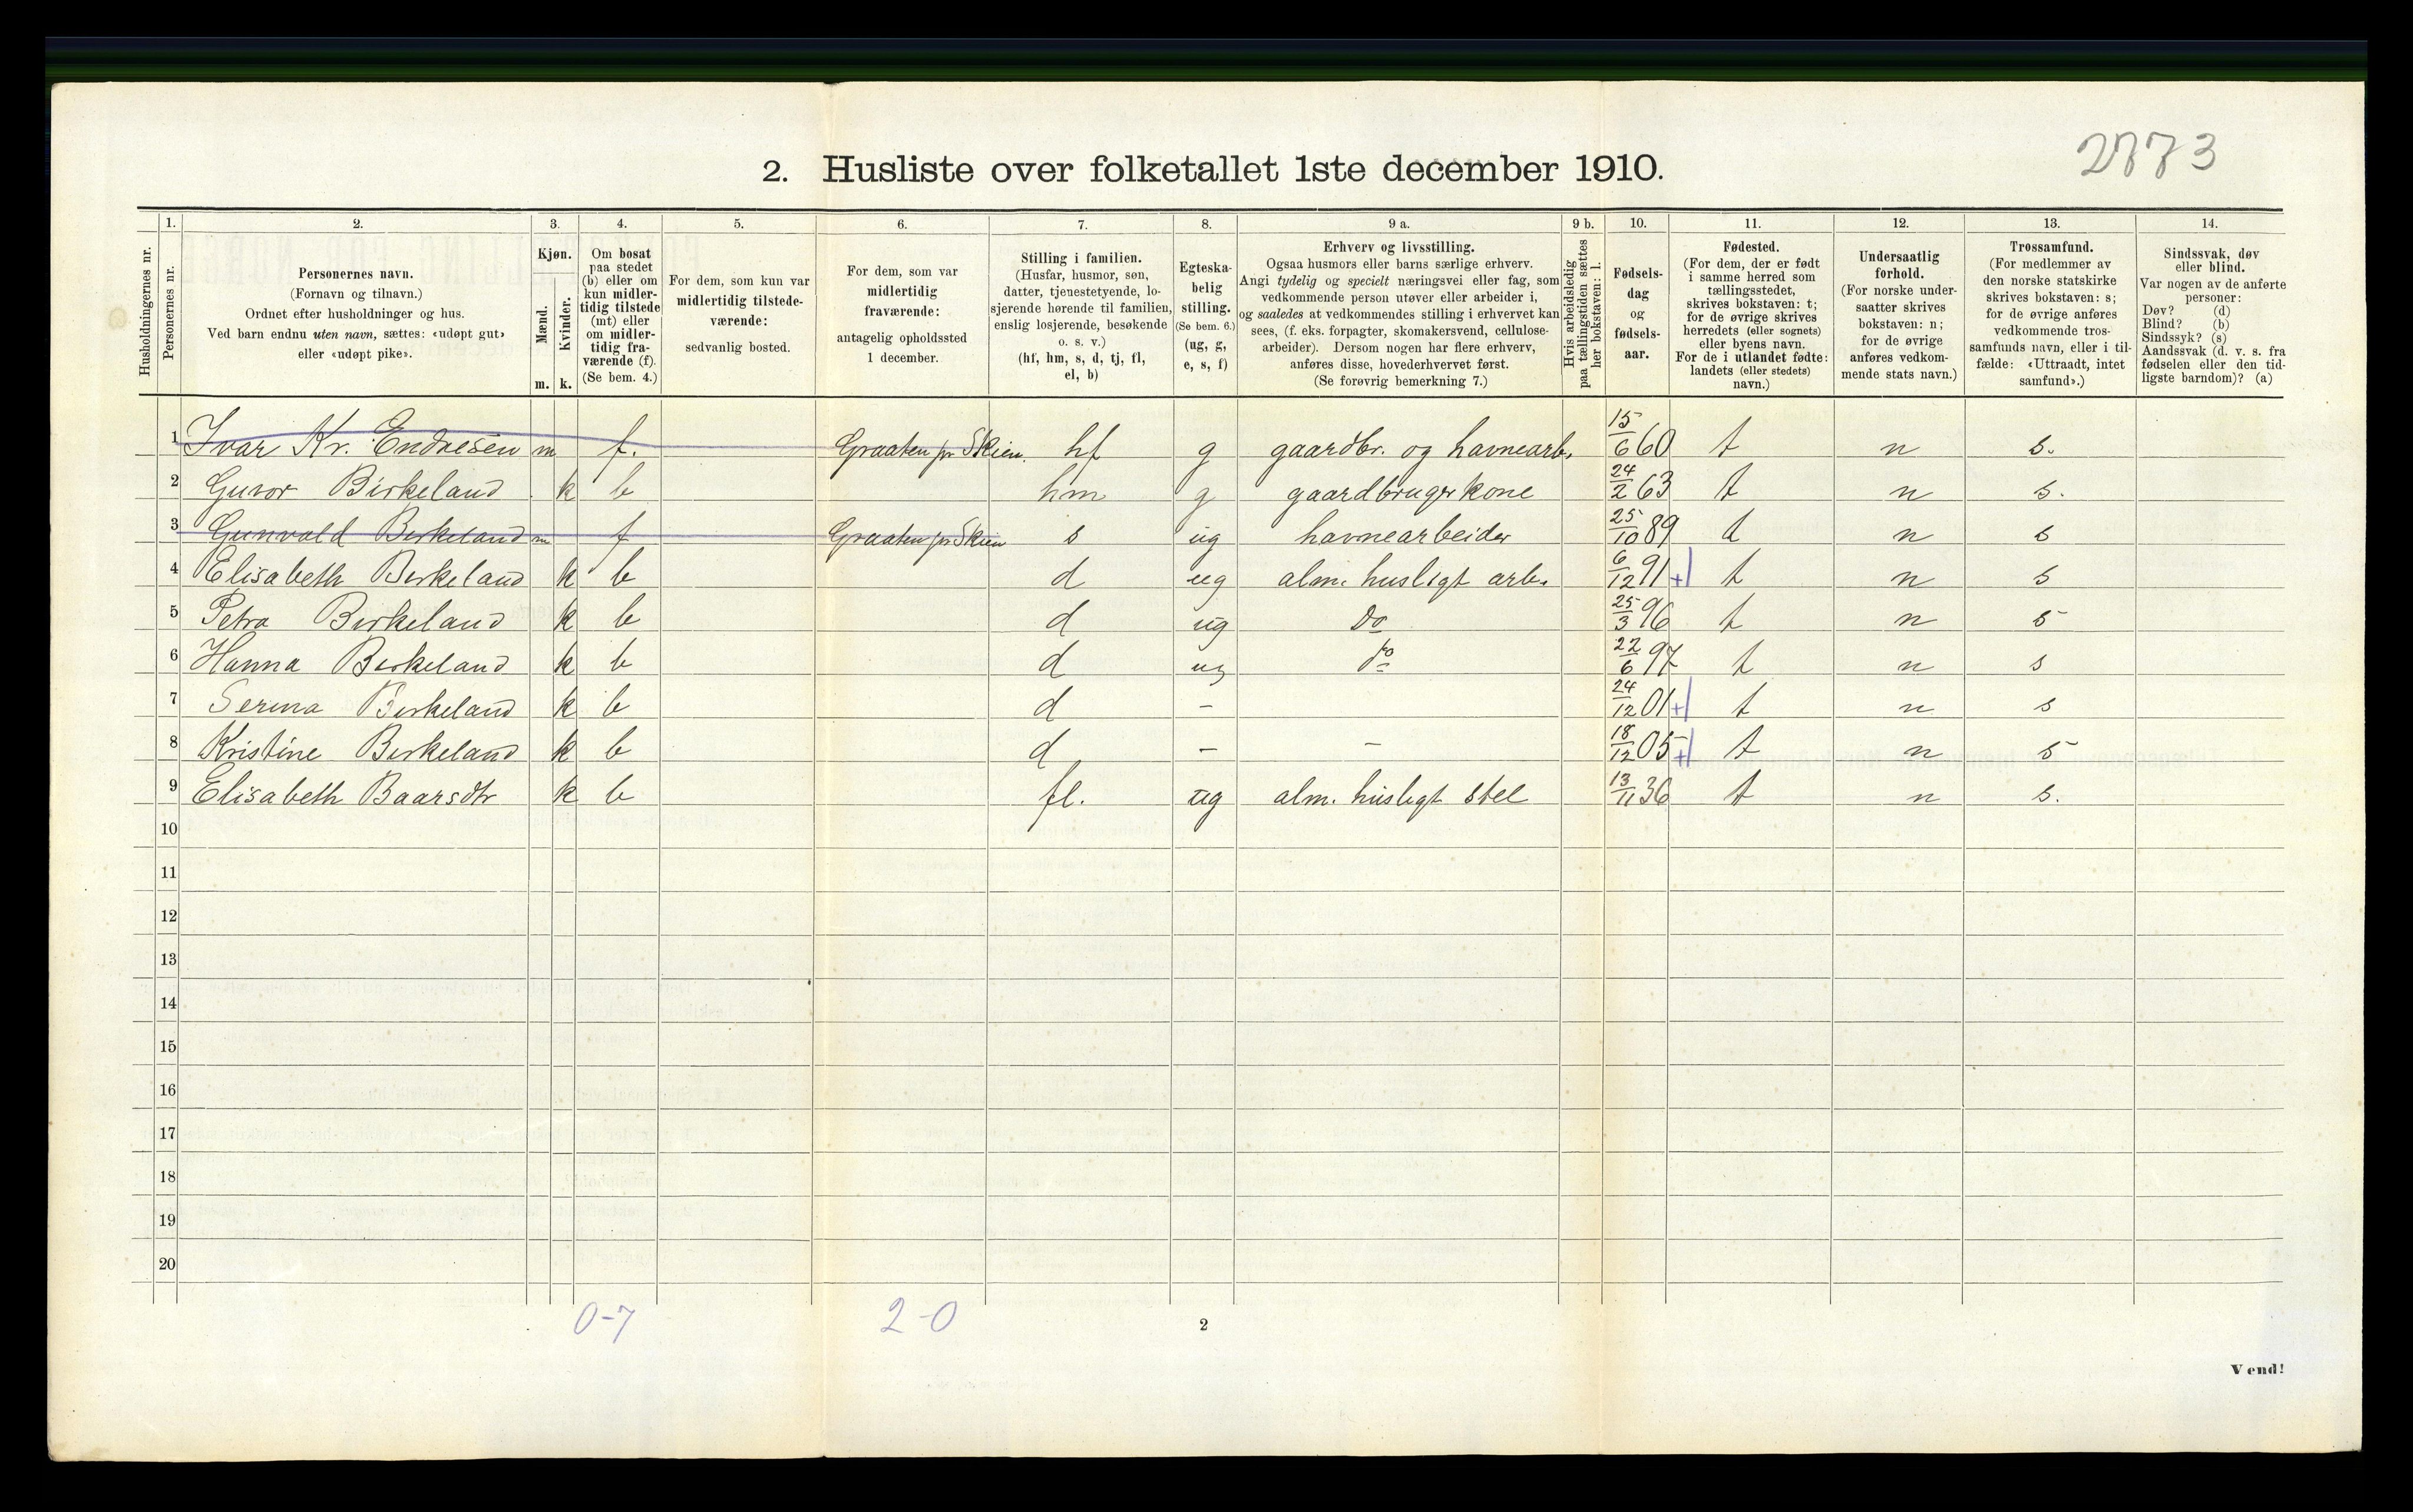 2773
2. Husliste over folketallet 1ste december 1910.
Husholdningernes nr.
1. Personernes nr.
2. Personernes navn. (Fornavn og tilnavn.) Ordnet efter husholdninger og hus. Ved barn endnu uten navn, sættes: «udøpt gut» eller «udøpt pike».
3. Kjøn. Mænd. m. Kvinder. k.
4. Om bosat paa stedet (b) eller om kun midlertidig tilstede (mt) eller om midlertidig fraværende (f). (Se bem. 4.)
5. For dem, som kun var midlertidig tilstedeværende: sedvanlig bosted.
6. For dem, som var midlertidig fraværende: antagelig opholdssted 1 december.
7. Stilling i familien. (Husfar, husmor, søn, datter, tjenestetyende, losjerende hørende til familien, enslig losjerende, besøkende o. s. v.) (hf, hm, s, d, tj, fl, el, b)
8. Egteskabelig stilling. (Se bem. 6.) (ug, g, e, s, f)
9 a. Erhverv og livsstilling. Ogsaa husmors eller barns særlige erhverv. Angi tydelig og specielt næringsvei eller fag, som vedkommende person utøver eller arbeider i, og saaledes at vedkommendes stilling i erhvervet kan sees, (f. eks. forpagter, skomakersvend, cellulosearbeider). Dersom nogen har flere erhverv, anføres disse, hovederhvervet først. (Se forøvrig bemerkning 7.)
9 b. Hvis arbeidsledig paa tællingstiden sættes her bokstaven: l.
10. Fødselsdag og fødselsaar.
11. Fødested. (For dem, der er født i samme herred som tællingsstedet, skrives bokstaven: t; for de øvrige skrives herredets (eller sognets) eller byens navn. For de i utlandet fødte: landets (eller stedets) navn.)
12. Undersaatlig forhold. (For norske undersaatter skrives bokstaven: n; for de øvrige anføres vedkommende stats navn.)
13. Trossamfund. (For medlemmer av den norske statskirke skrives bokstaven: s; for de øvrige anføres vedkommende trossamfunds navn, eller i tilfælde: «Uttraadt, intet samfund».)
14. Sindssvak, døv eller blind. Var nogen av de anførte personer: Døv? (d) Blind? (b) Sindssyk? (s) Aandssvak (d. v. s. fra fødselen eller den tidligste barndom)? (a)
1 Ivar Kr. Endresen m f. Graaten pr Skien. hf g gaardbr. og havnearb. 15/6 60 t n s.
2 Guror Birkeland k b hm g gaardbruger kone 24/2 63 t n s.
3 Gunvald Birkeland m f Graaten pr Skien s ug havnearbeider 25/10 89 t n s
4 Elisabeth Birkeland k b d ug alm. husligt arb. 6/12 91 + t n s
5 Petra Birkeland k b d ug Do 25/3 96 t n s
6 Hanna Birkeland k b d ug do 22/6 97 t n s
7 Serina Birkeland k b d - 24/12 01 + t n s
8 Kristine Birkeland k b d - - 18/12 05 + t n s
9 Elisabeth Baarsdtr k b fl. ug alm. husligt stel 13/11 36 t n s.
10
11
12
13
14
15
16
17
18
19
20
0-7 2-0
2
Vend!